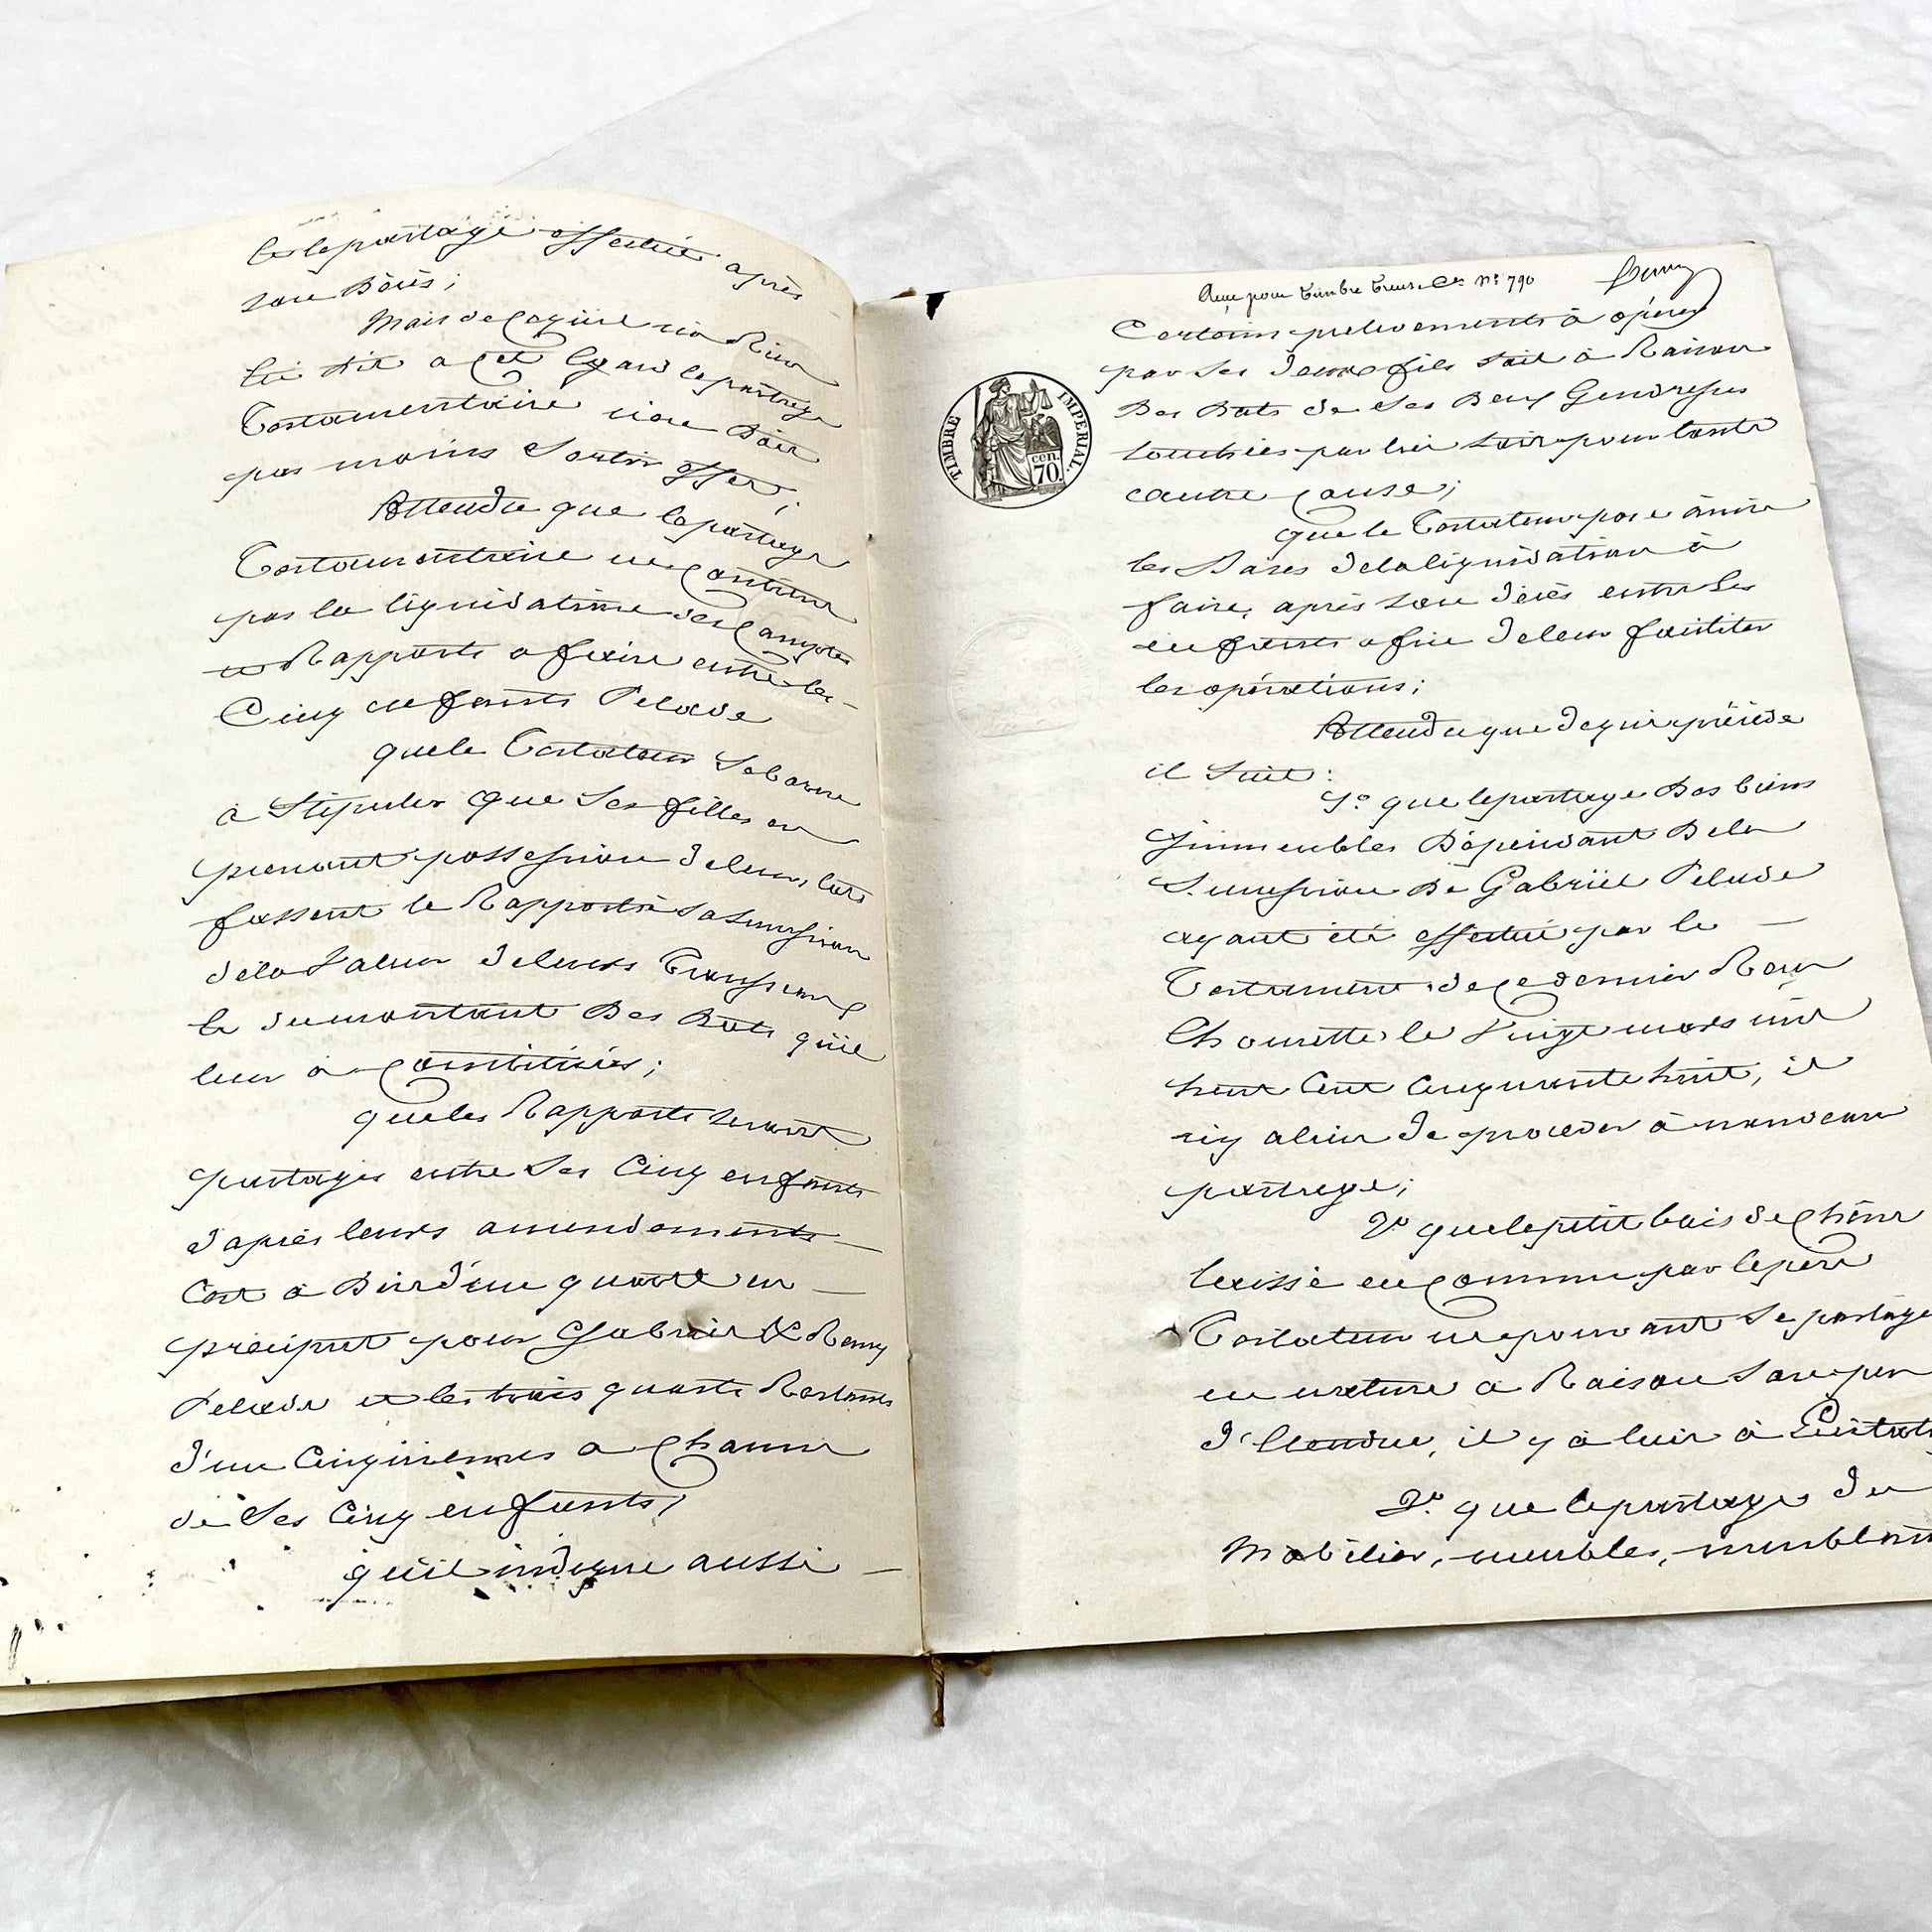 les le partage effectué après
son décès;
Mais de ce qu'il n'a Rien
été dit a cet Egard le partage
Testamentaire n'en doit
pas moins Sortir effet;
Attendu que le partage
Testamentaire ne contient
pas la liquidation des comptes
et Rapports a faire entre les
Cinq enfants Pelade
que le Testateur Se borne
à Stipuler que Ses filles en
prenant possession de leurs lots
fassent le Rapport à Sa Succession
de la Valeur de leurs Trousseaux
et du montant des Dots qu'il
leur à constituées;
que les Rapports seront
partagés entre Ses Cinq enfants
d'après leurs amendements
C'est à Dire d'un quart en
préciput pour Gabriel & Remy
Pelade et les trois quarts Restants
d'un Cinquième a Chacun
de Ses Cinq enfants;
qu'il indique aussi
Reçu pour Timbre N° 790
Certains prélèvements à opérer
par Ses deux fils Soit à Raison
des Dots de Ses deux Gendresses
touchées par lui Soit pour toute
autre cause;
que le Testateur pose ainsi
les Bases de la liquidation à
faire, après Son décès entre Ses
enfants afin de leur faciliter
les opérations;
Attendu que de qui précède
il Suit:
1° que le partage des biens
Immeubles Dépendant de la
Succession de Gabriel Pelade
ayant été effectué par le
Testament de ce dernier Reçu
Chouette le Vingt mars mil
huit Cent Cinquante huit, il
n'y a lieu de procéder à nouveau
partage;
2° que le petit bois de Chêne
laissé en commun par le père
Testateur ne pouvant Se partager
en nature à Raison Son peu
d'Etendue, il y à lieu à
3° que le partage du
Mobilier, meubles, meublants
TIMBRE IMPERIAL.
cen.
70.